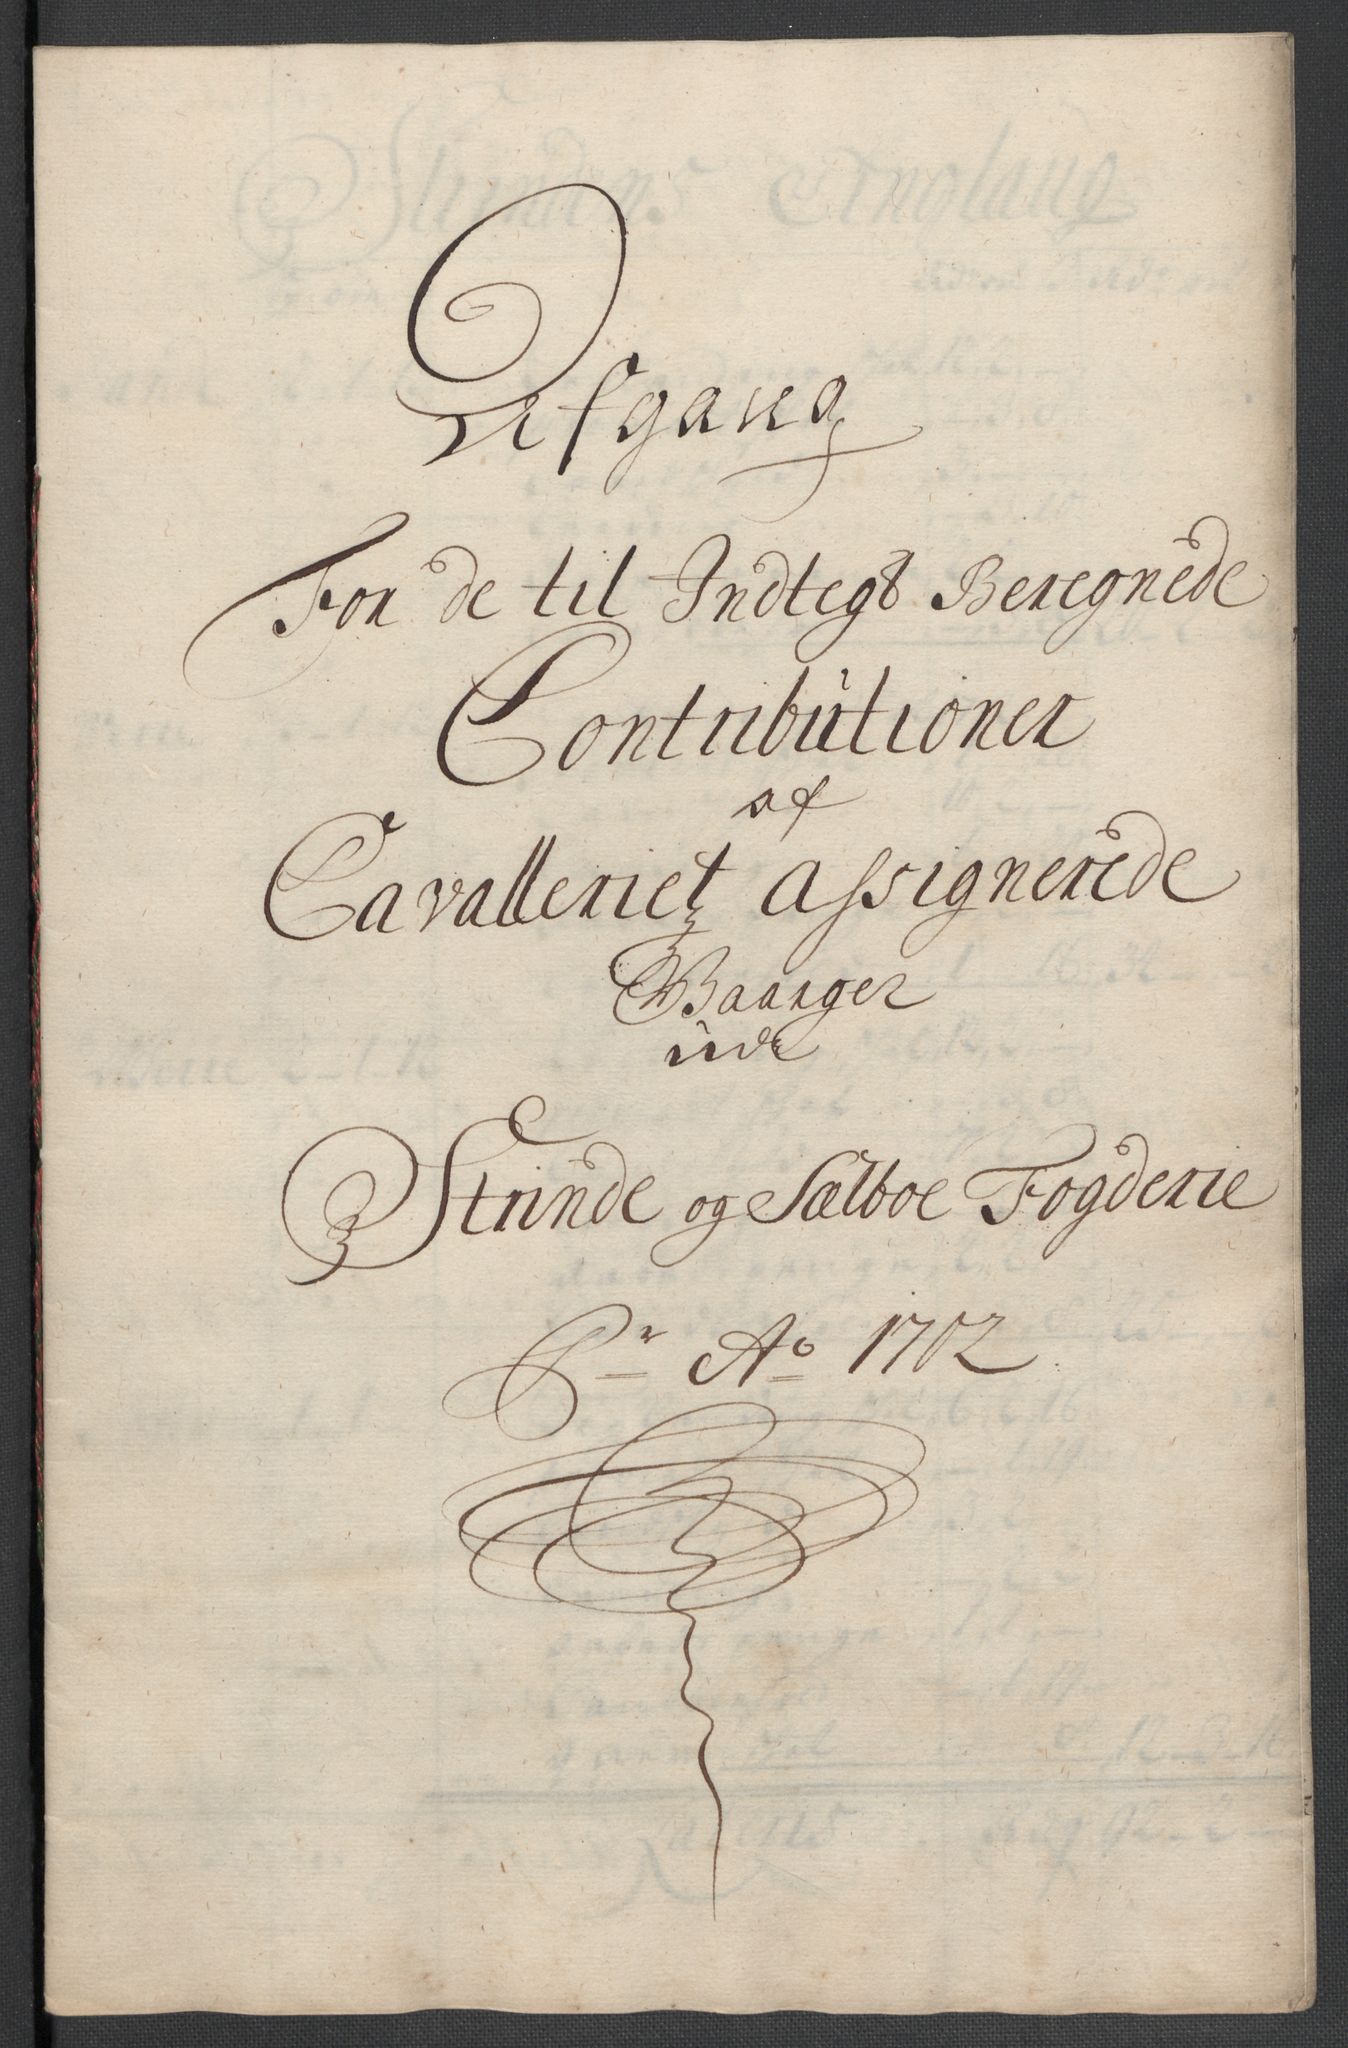 Afgang
For de til Indtegt Beregnede
Contributioner
af
Cavalleriet assignerede
Qvarter
udi
Strinde og Sælboe Fogderie
Pr Ao 1702